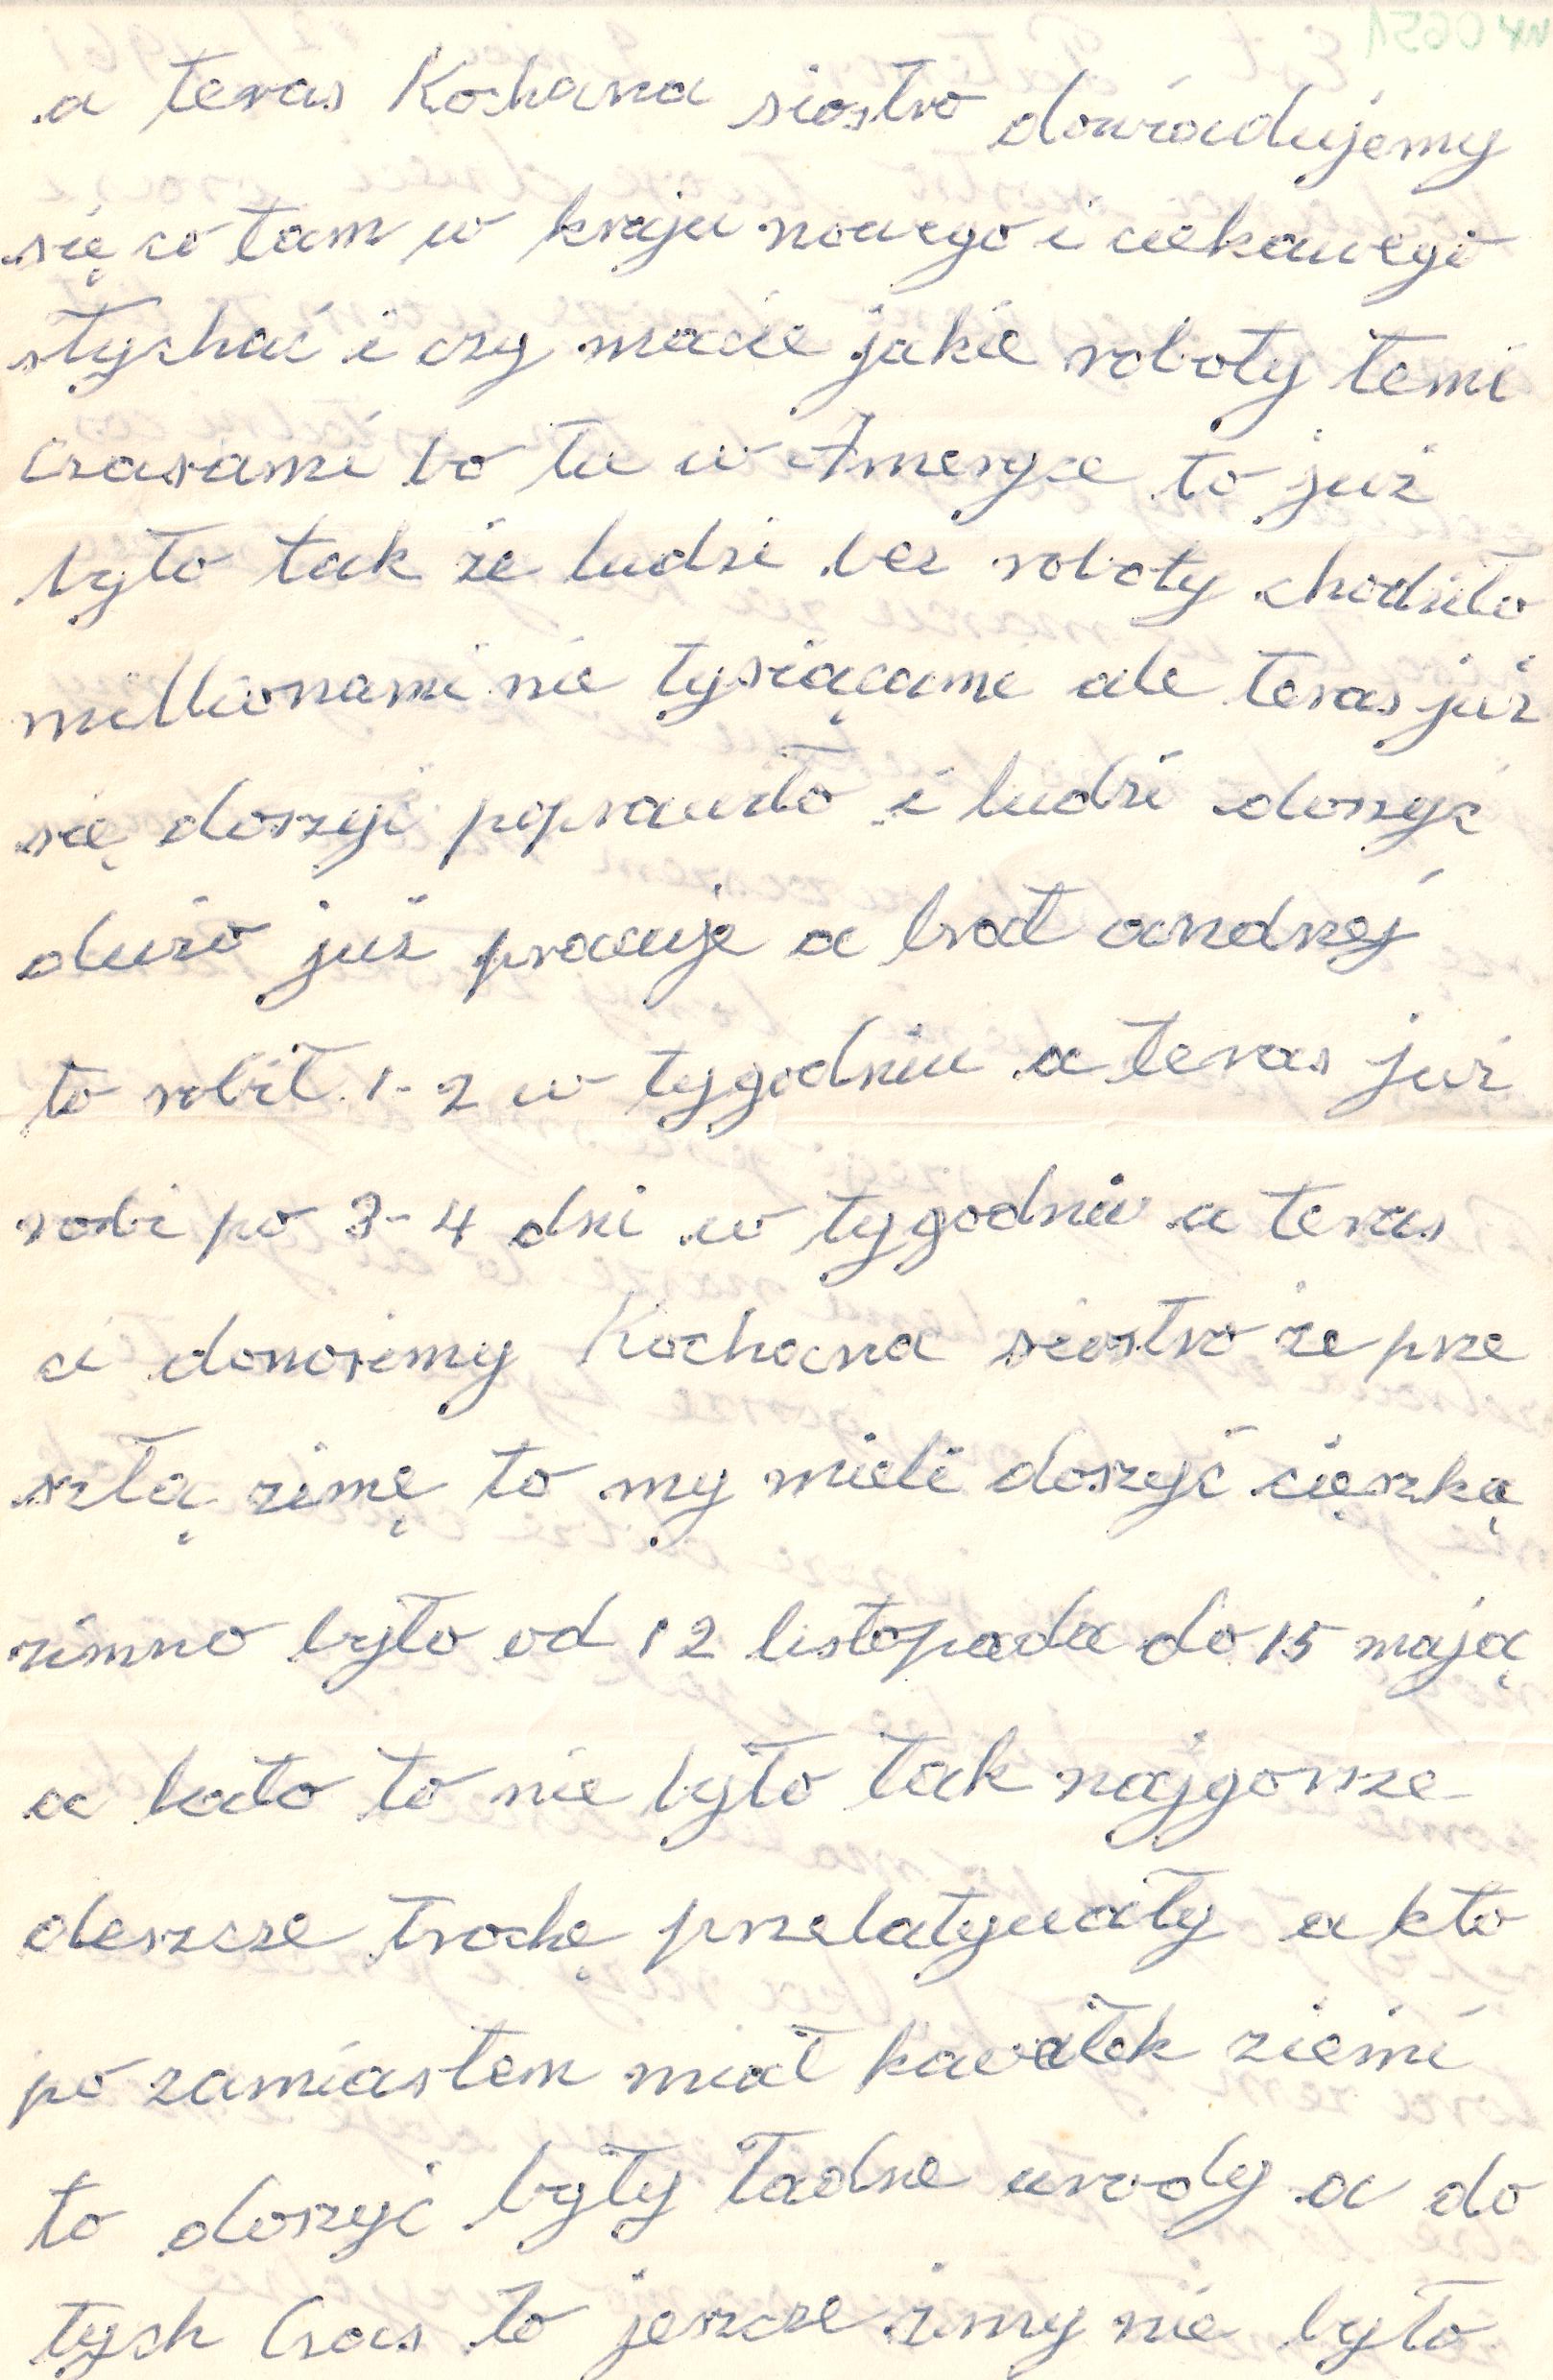 a teras Kochana siostro dowiadujemy
się co tam w kraju nowego i ciekawego
słychać i czy macie jakie roboty temi
czasami bo tu w Ameryce to już
było tak że ludzi bez roboty chodziło
millionami nie tysiącami ale teras już
się doszyć poprawiło i ludzi doszyć
dużo już pracuje a brat andrzej
to robił 1-2 w tygodniu a teras już
robi po 3-4 dni w tygodniu a teras
ci donosimy Kochana siostro że prze
szłą zimę to my mieli doszyć cięszką
zimno było od 12 listopada do 15 mają
a lato to nie było tak najgorsze
deszcze trochę przelatywały a kto
po zamiastem miał kawałek ziemi
to doszyć były ładne urody a do
tych Czas to jeszcze zimy nie było